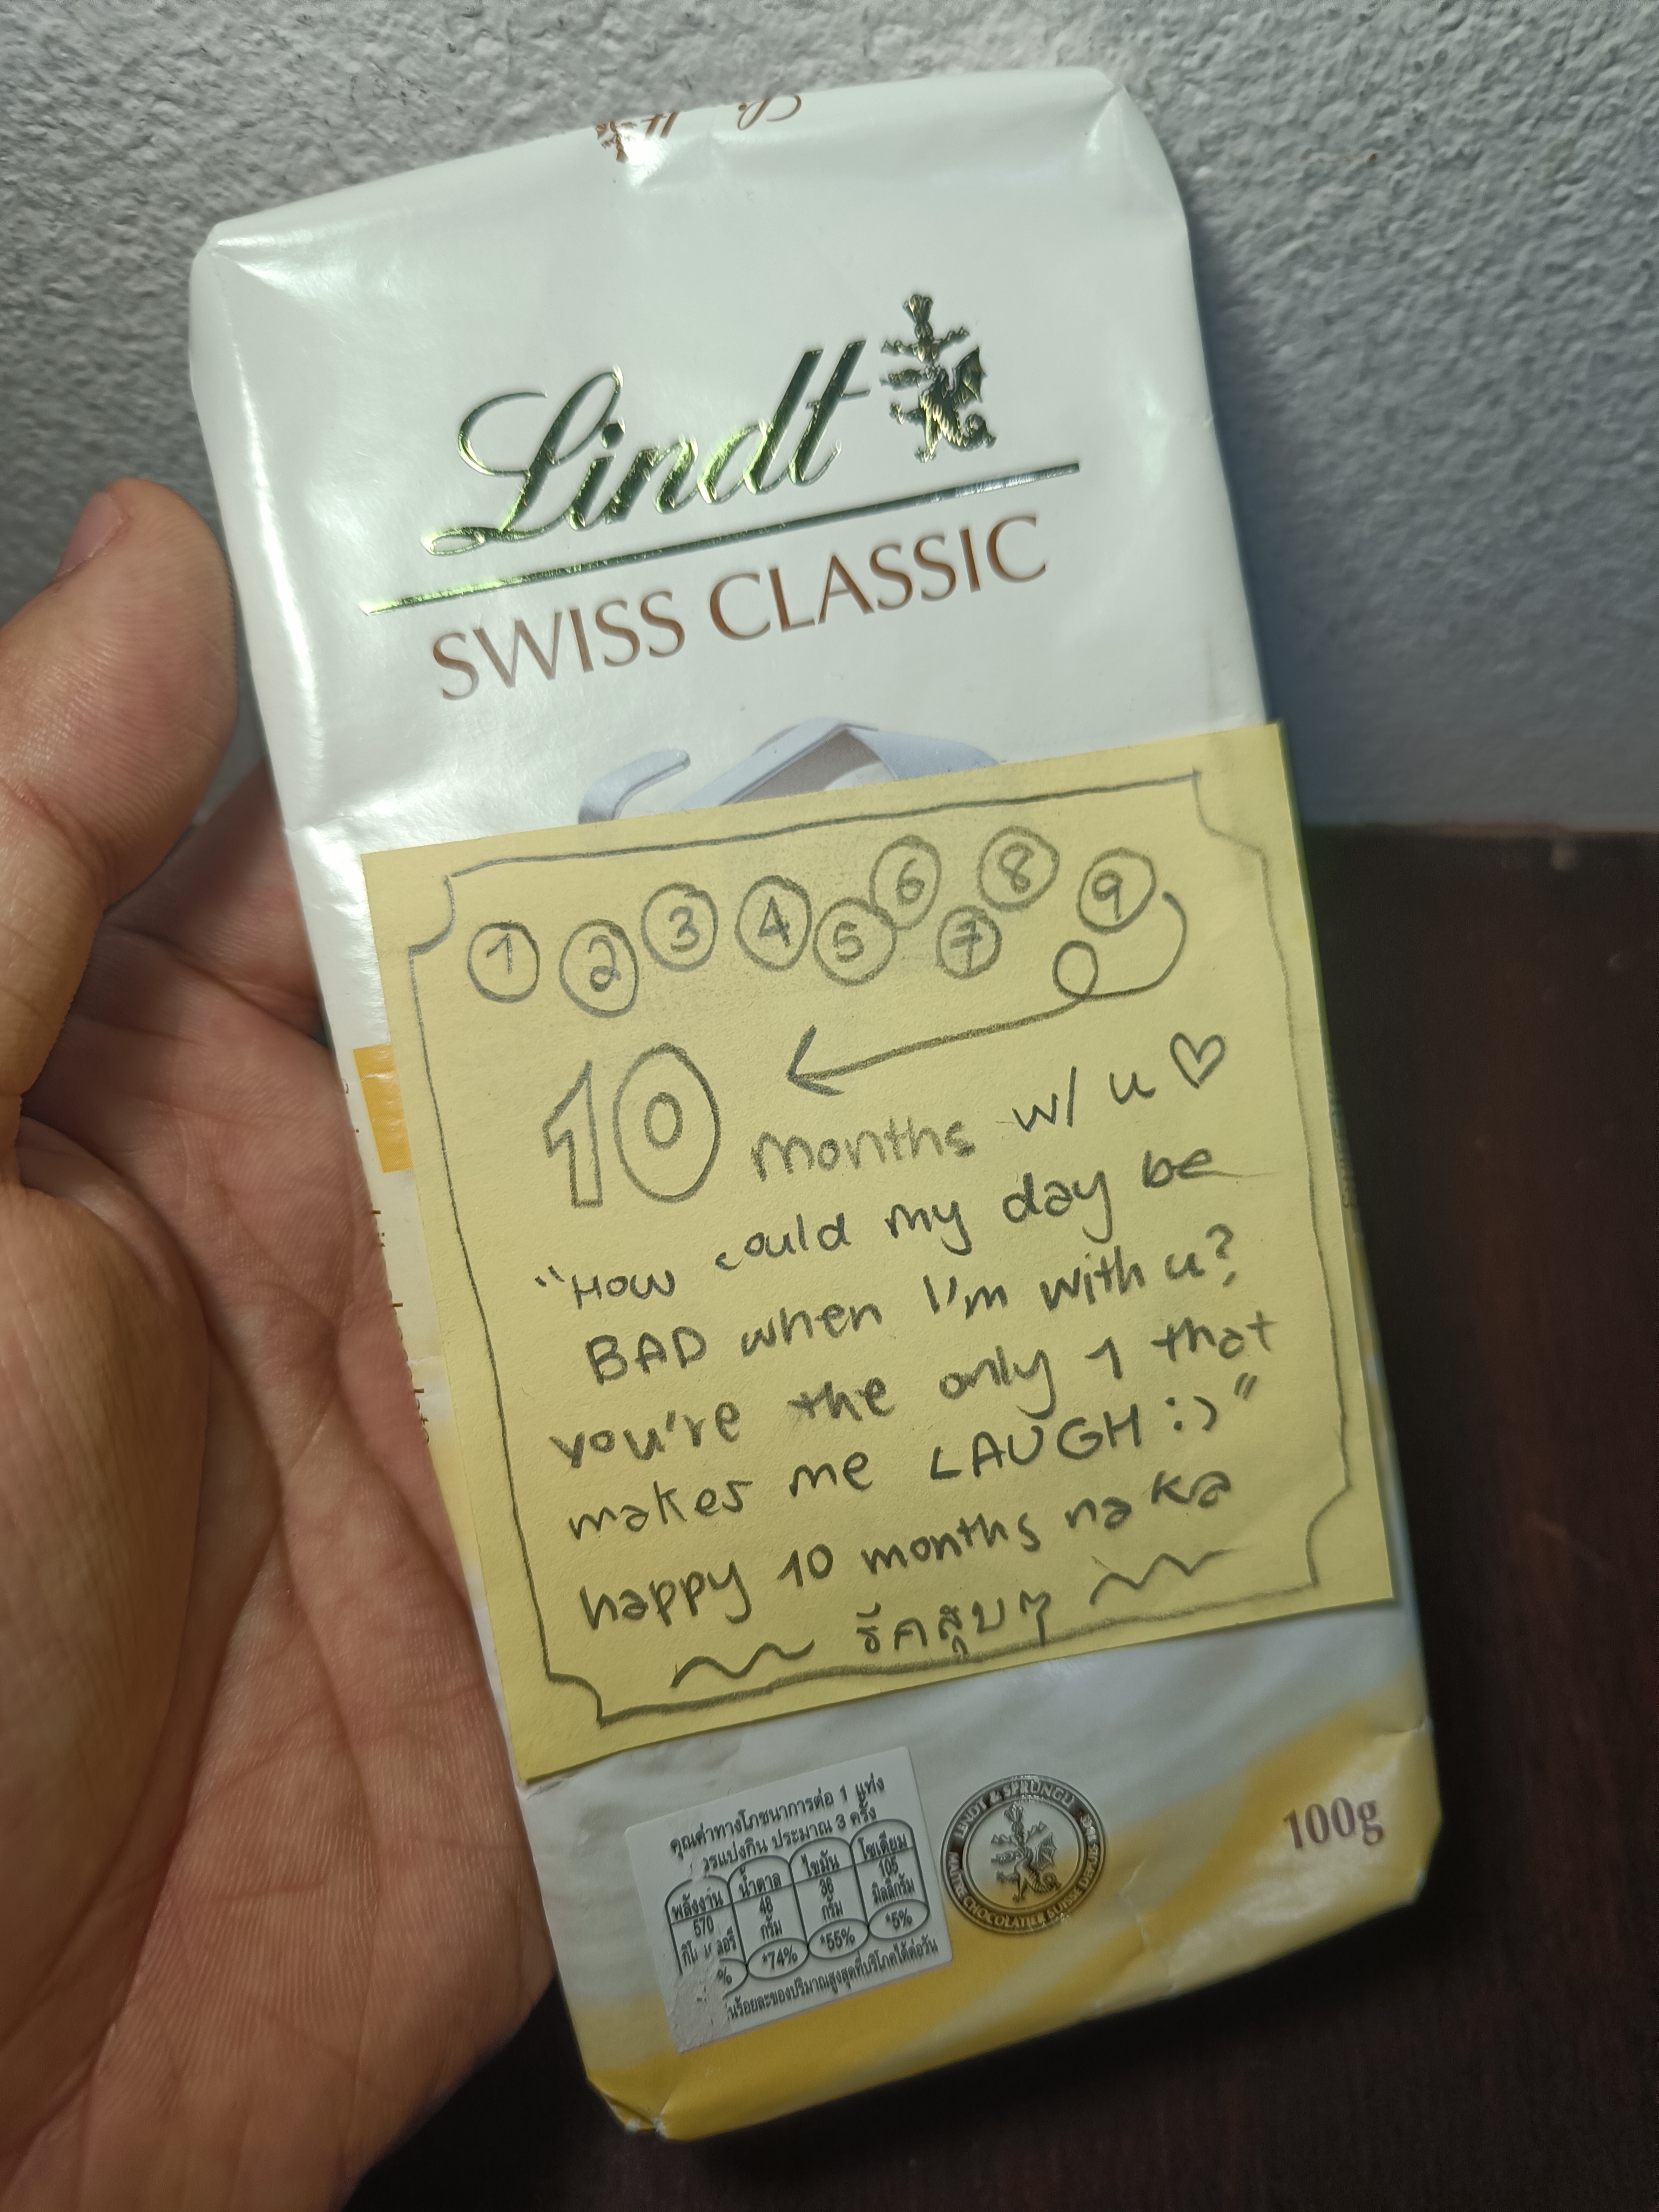 Lindt
SWISS CLASSIC
1 2 3 4 5 6 7 8 9
10 months w/ u ♡
"How could my day be
BAD when I'm with u?
you're the only 1 that
makes me LAUGH :)"
happy 10 months na ka
~~ รักสุบๆ ~~
คุณค่าทางโภชนาการต่อ 1 แท่ง
วรแบ่งกิน ประมาณ 3 ครั้ง
พลังงาน น้ำตาล ไขมัน โซเดียม
570 48 36 105
กรัม กรัม มิลลิกรัม
% *74% *55% *5%
นร้อยละของปริมาณสูงสุดที่บริโภคได้ต่อวัน
LINDT & SPRÜNGLI
MAÎTRE CHOCOLATIER SUISSE DEPUIS 1845
100g